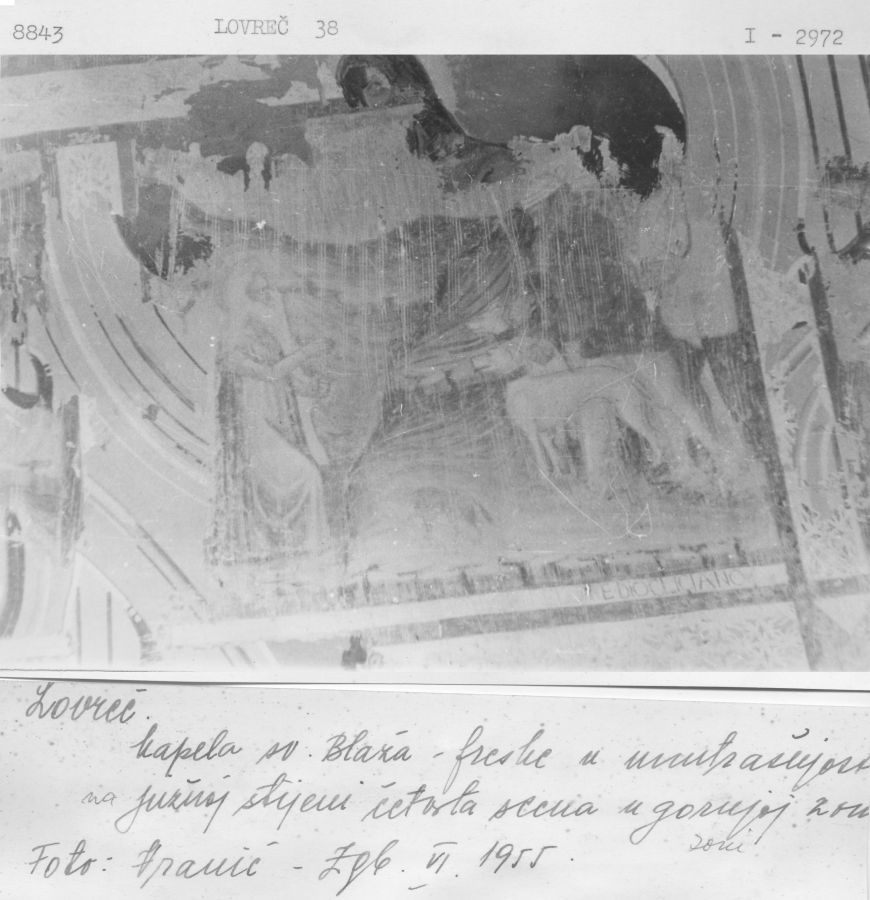 8843
LOVREČ 38
I - 2972
E DIOCLICIANO
Lovreč.
kapela sv. Blaža - freske u unutrašnjost
na južnoj stijeni četvrta scena u gornjoj zoni
zoni
Foto: Vranić - Zgb. VI. 1955.